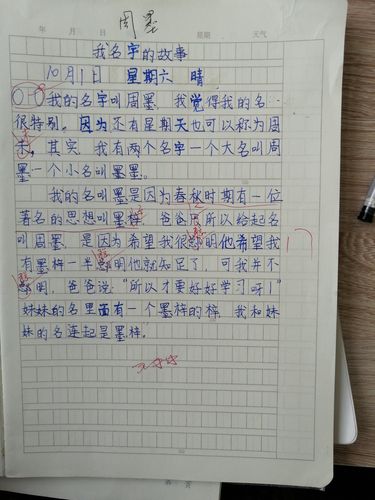 周墨
年 月 日 星期 天气
我名字的故事
10月1日 星期六 晴
我的名字叫周墨,我觉得我的名
很特别。因为还有星期天也可以称为周
末,其实,我有两个名字一个大名叫周
墨一个小名叫墨墨。
我的名叫墨是因为春秋时期有一位
著名的思想叫墨梓,爸爸所以给起名
叫周墨,是因为希望我很聪明他希望我
有墨梓一半聪明他就知足了,可我并不
聪明,爸爸说:“所以才要好好学习呀!”
妹妹的名里面有一个墨梓的梓,我和妹
妹的名连起是墨梓。